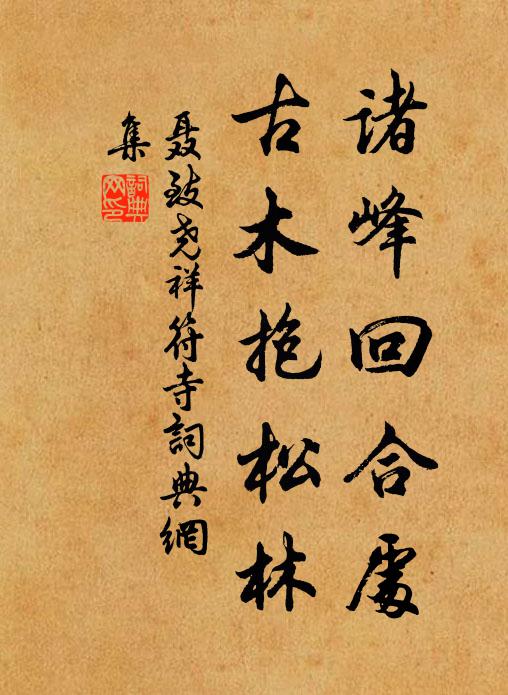 諸峰回合處
古木抱松林
聂致尧祥符寺詞典網
集
詞典
网印